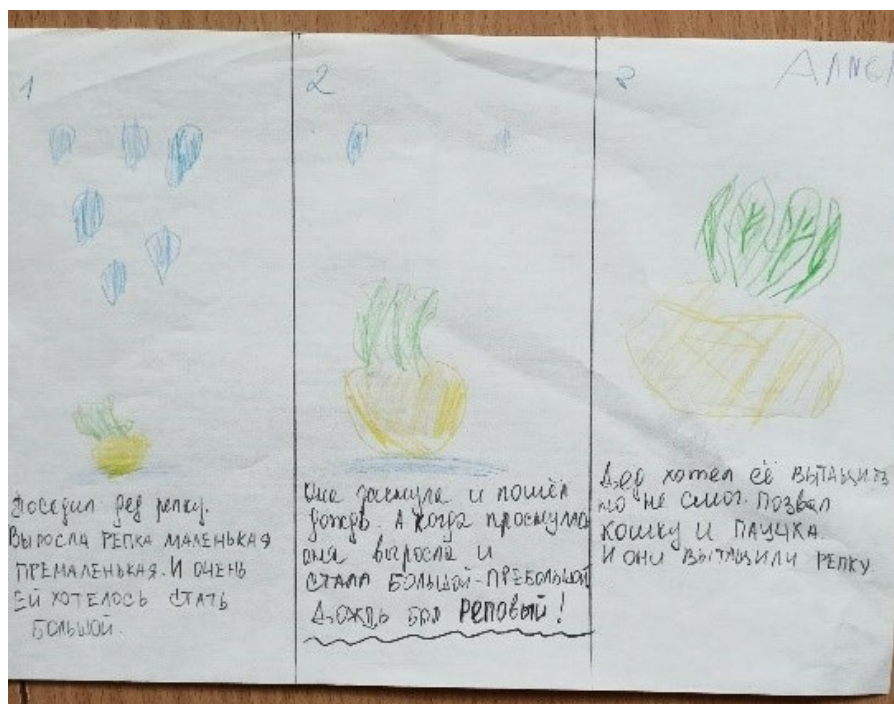 1
Посадил дед репку.
ВЫРОСЛА РЕПКА МАЛЕНЬКАЯ
ПРЕМАЛЕНЬКАЯ. И ОЧЕНЬ
ЕЙ ХОТЕЛОСЬ СТАТЬ
БОЛЬШОЙ.
2
Она заснула и пошёл
дождь. А когда проснулась
она выросла и
СТАЛА БОЛЬШОЙ-ПРЕБОЛЬШОЙ
ДОЖДЬ БЫЛ РЕПОВЫЙ!
3
Дед хотел её ВЫТАЩИТЬ
но не смог. ПОЗВАЛ
КОШКУ И ПАУЧКА.
И ОНИ ВЫТАЩИЛИ РЕПКУ